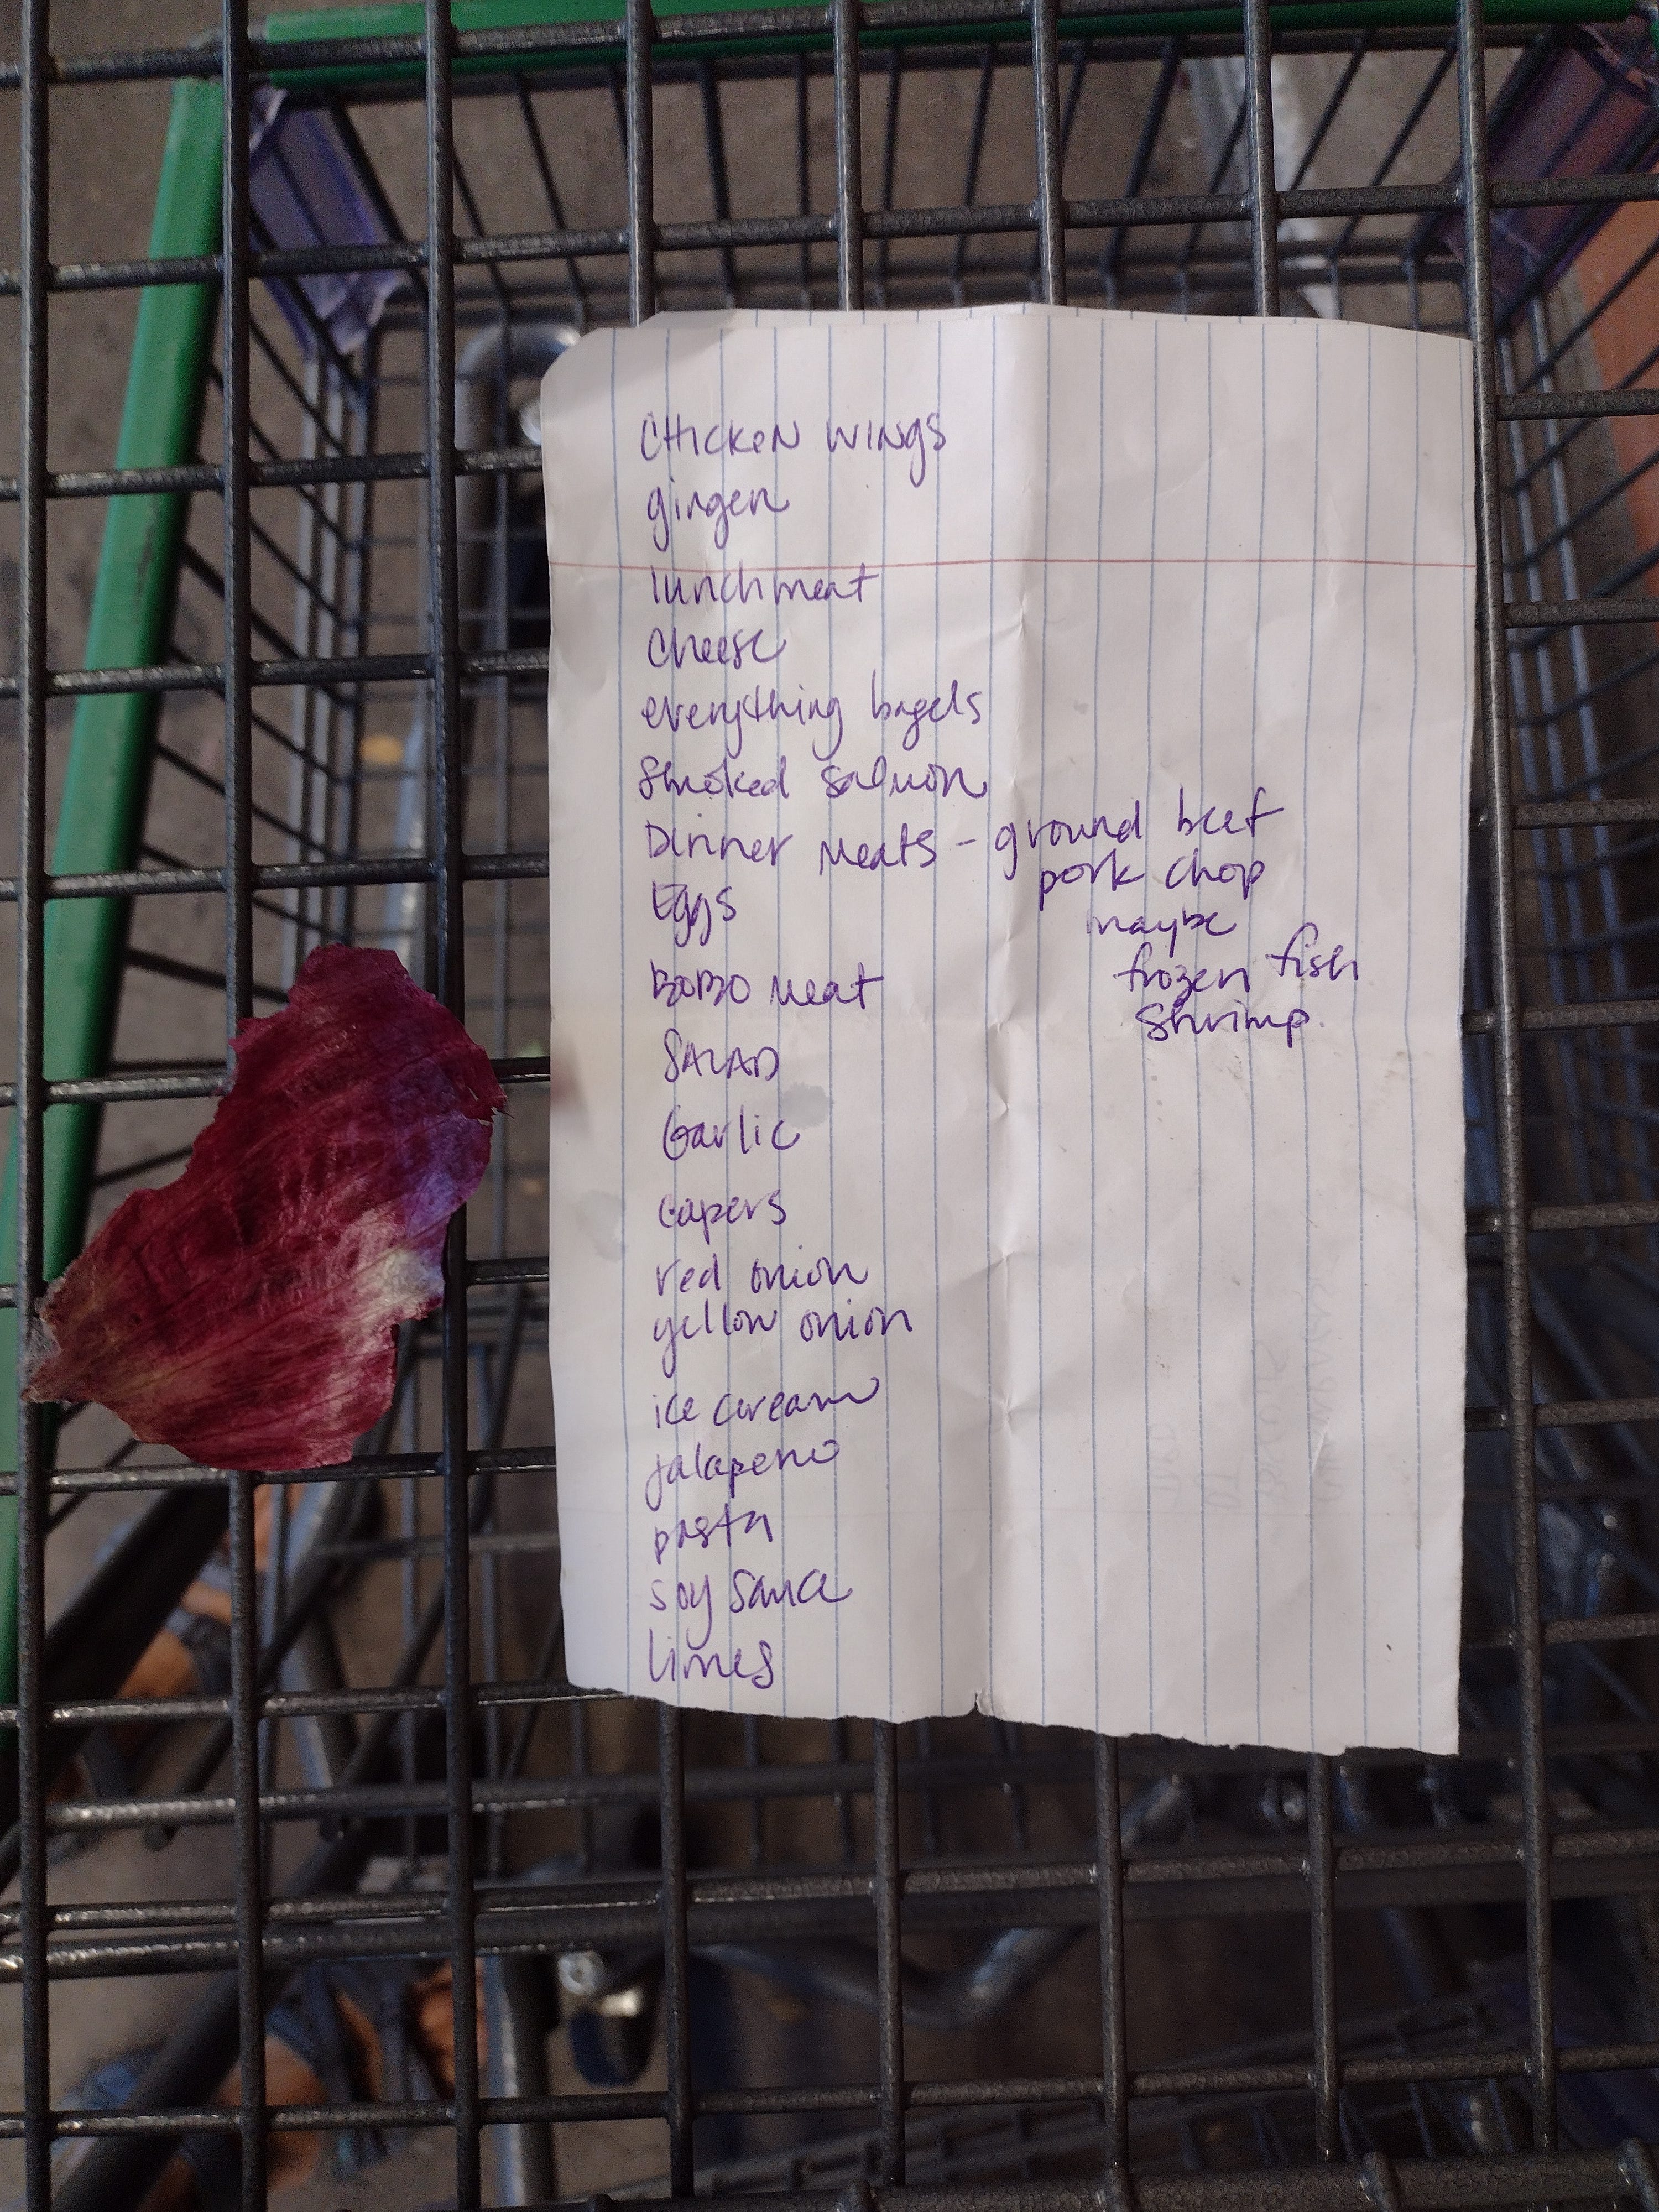 CHICKEN WINGS
ginger
lunchmeat
cheese
everything bagels
Smoked Salmon
Dinner Meats - ground beef
pork chop
maybe
frozen fish
shrimp
Eggs
BOBO Meat
SALAD
Garlic
capers
red onion
yellow onion
ice cream
jalapeno
pasta
soy sauce
limes